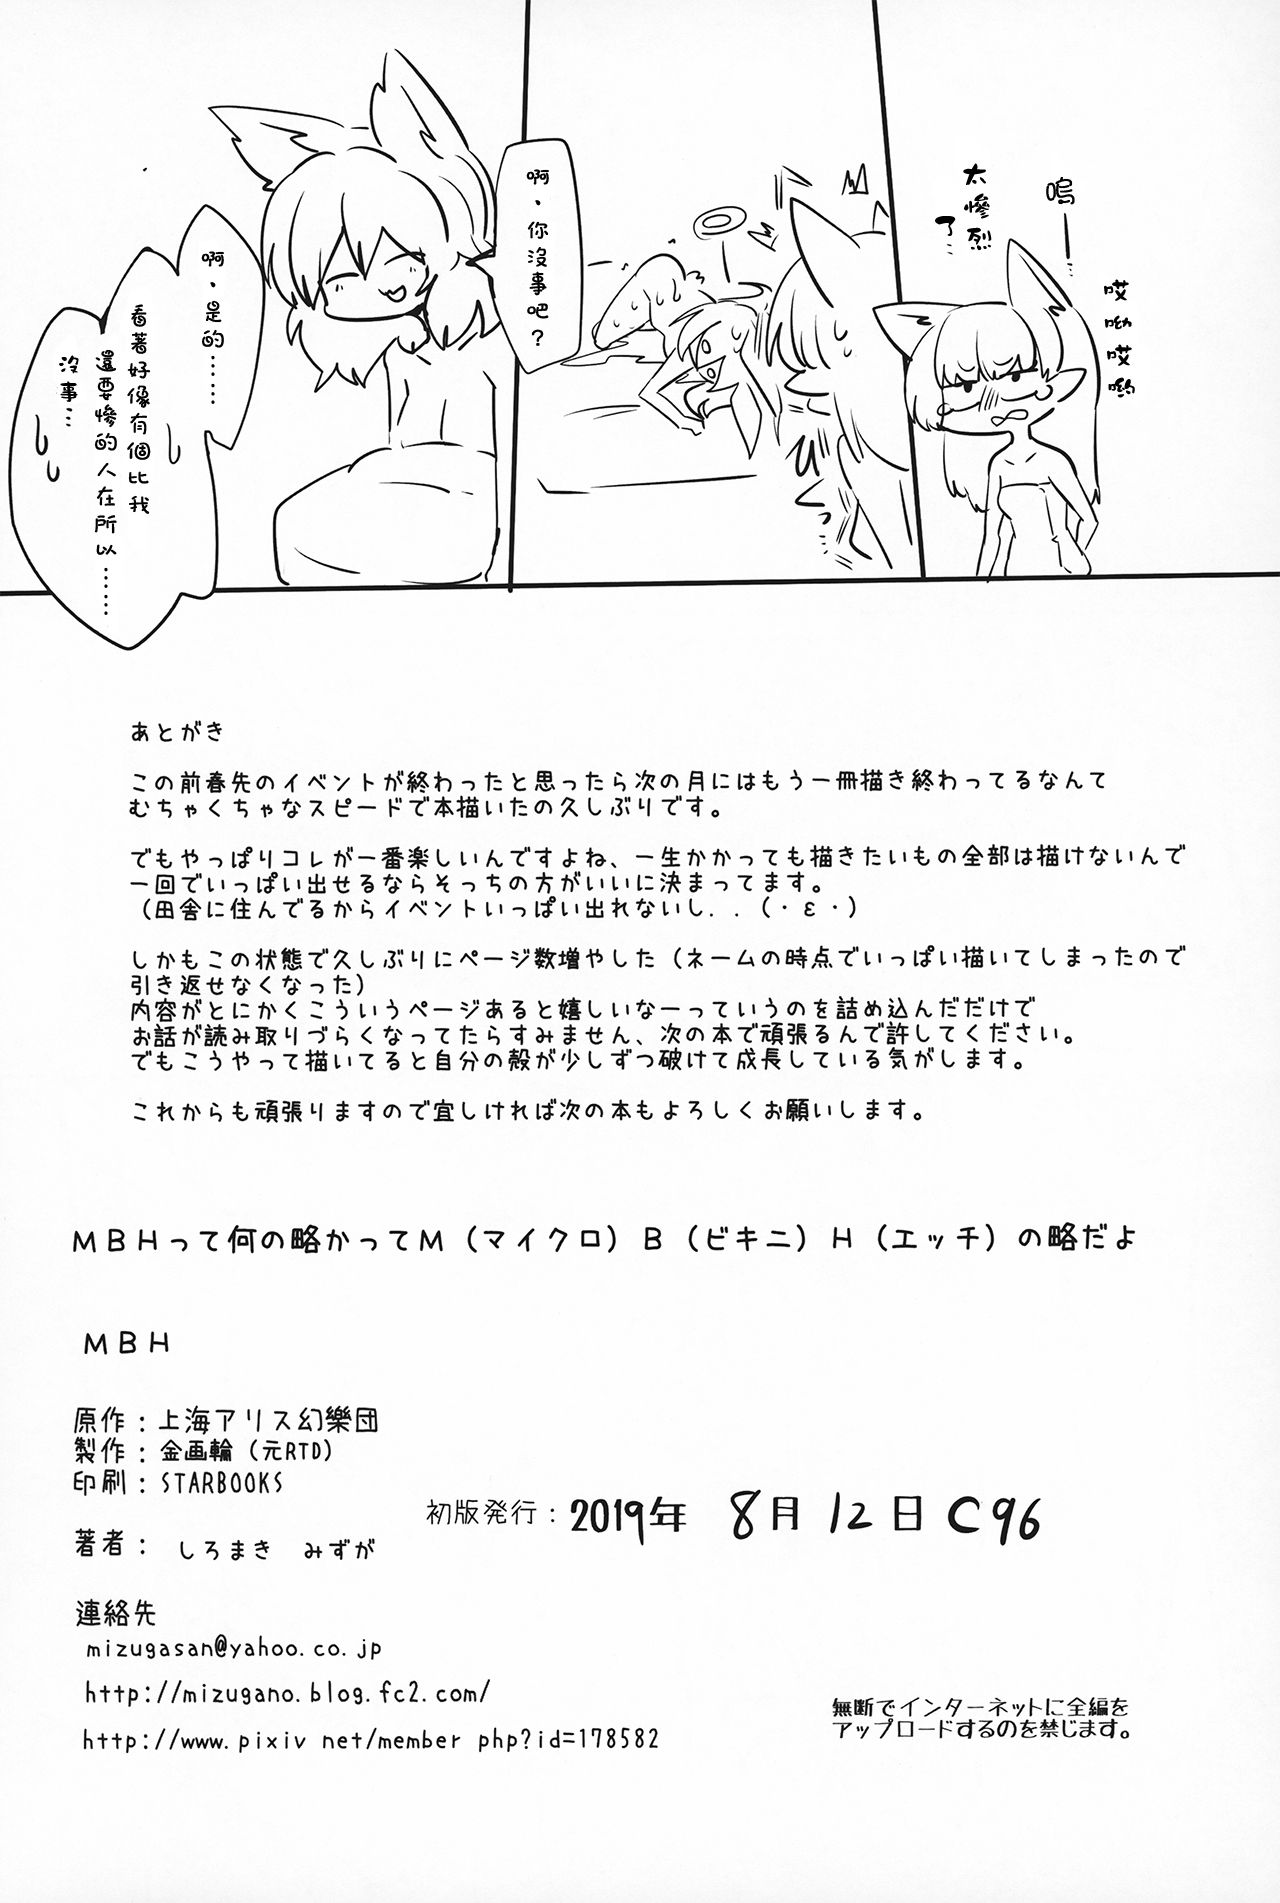 嗚——…
哎呦哎喲
太慘烈
了…
啊，你沒事吧？
ひ
くっ
啊，是的……
看著好像有個比我
還要慘的人在所以……
沒事…
あとがき
この前春先のイベントが終わったと思ったら次の月にはもう一冊描き終わってるなんて
むちゃくちゃなスピードで本描いたの久しぶりです。
でもやっぱりコレが一番楽しいんですよね、一生かかっても描きたいもの全部は描けないんで
一回でいっぱい出せるならそっちの方がいいに決まってます。
（田舎に住んでるからイベントいっぱい出れないし．．（・ε・）
しかもこの状態で久しぶりにページ数増やした（ネームの時点でいっぱい描いてしまったので
引き返せなくなった）
内容がとにかくこういうページあると嬉しいなーっていうのを詰め込んだだけで
お話が読み取りづらくなってたらすみません、次の本で頑張るんで許してください。
でもこうやって描いてると自分の殻が少しずつ破けて成長している気がします。
これからも頑張りますので宜しければ次の本もよろしくお願いします。
MBHって何の略かってM（マイクロ）B（ビキニ）H（エッチ）の略だよ
MBH
原作：上海アリス幻樂団
製作：金画輪（元RTD）
印刷：STARBOOKS
初版発行：2019年 8月12日 C96
著者： しろまき みずが
連絡先
mizugasan@yahoo.co.jp
http://mizugano.blog.fc2.com/
http://www.pixiv net/member php?id=178582
無断でインターネットに全編を
アップロードするのを禁じます。